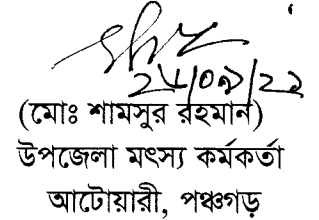 ২৮/০৯/২১
(মোঃ শামসুর রহমান)
উপজেলা মৎস্য কর্মকর্তা
আটোয়ারী, পঞ্চগড়